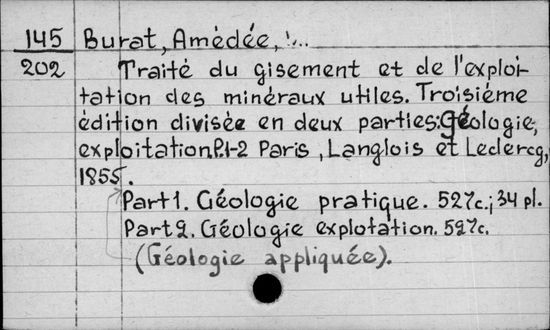 145 Burat, Amédée, '...
202 Traité du gisement et de l'exploi-
tation des minéraux utiles. Troisiéme
édition divisée en deux parties: Géologie,
exploitation P.1-2 Paris, Langlois et Leclercq,
1855.
Part 1. Géologie pratique. 527c.; 34 pl.
Part 2. Géologie explotation. 527c.
(Géologie appliquée).